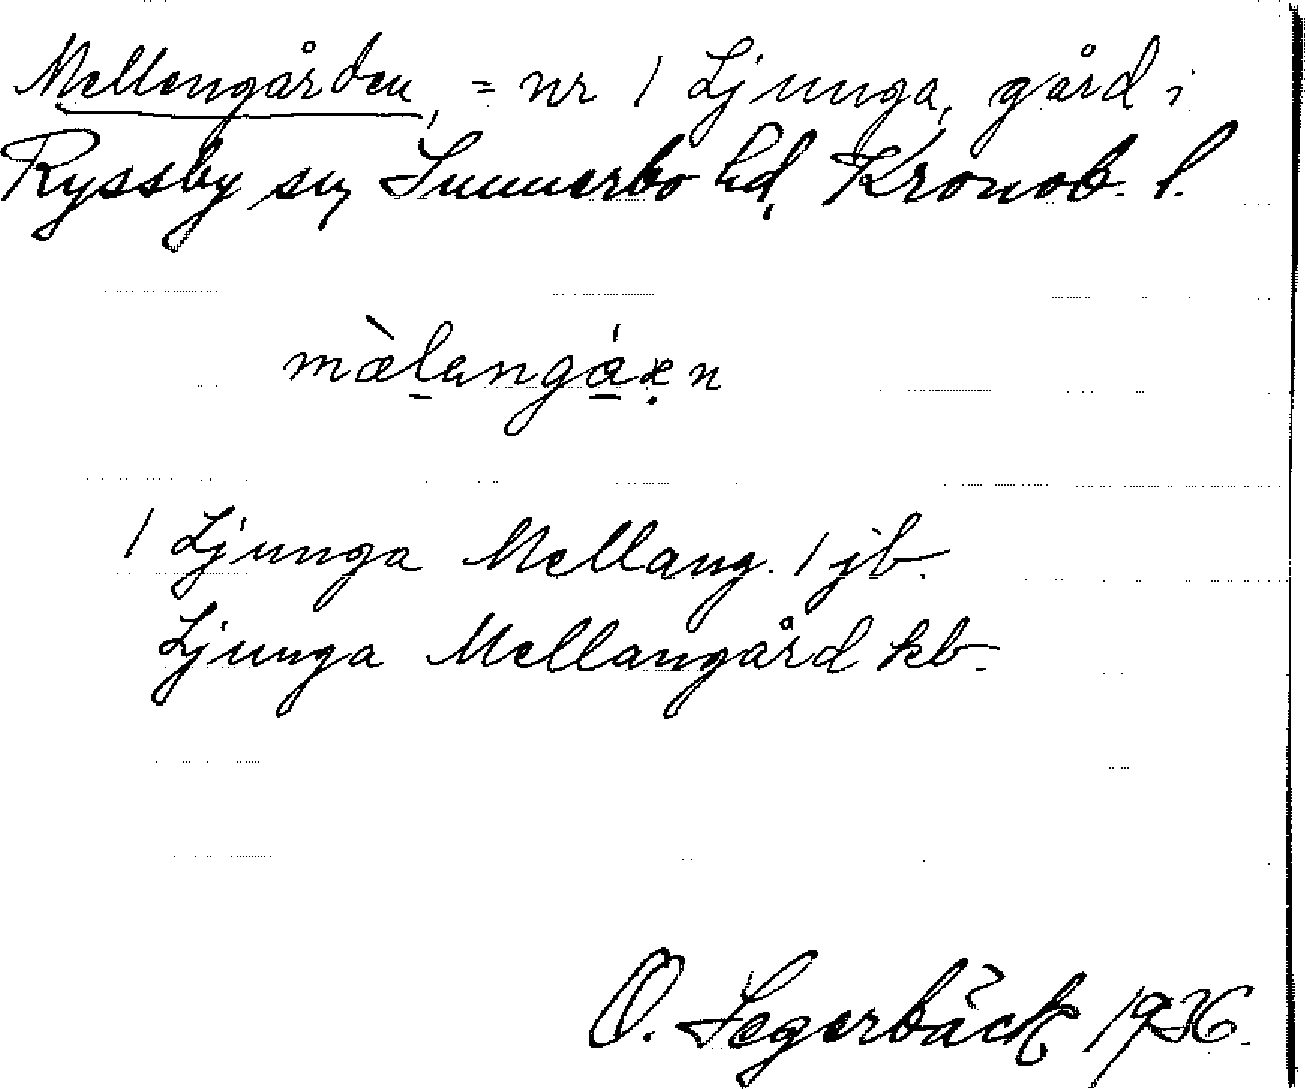 Mellengården, = nr 1 Ljunga, gård i
Ryssby sn, Sunnerbo hd, Kronob. l.
mæ̀langáæn
1 Ljunga Mellang. 1 jb.
Ljunga Mellangård kb.
O. Segerbäck 1936.